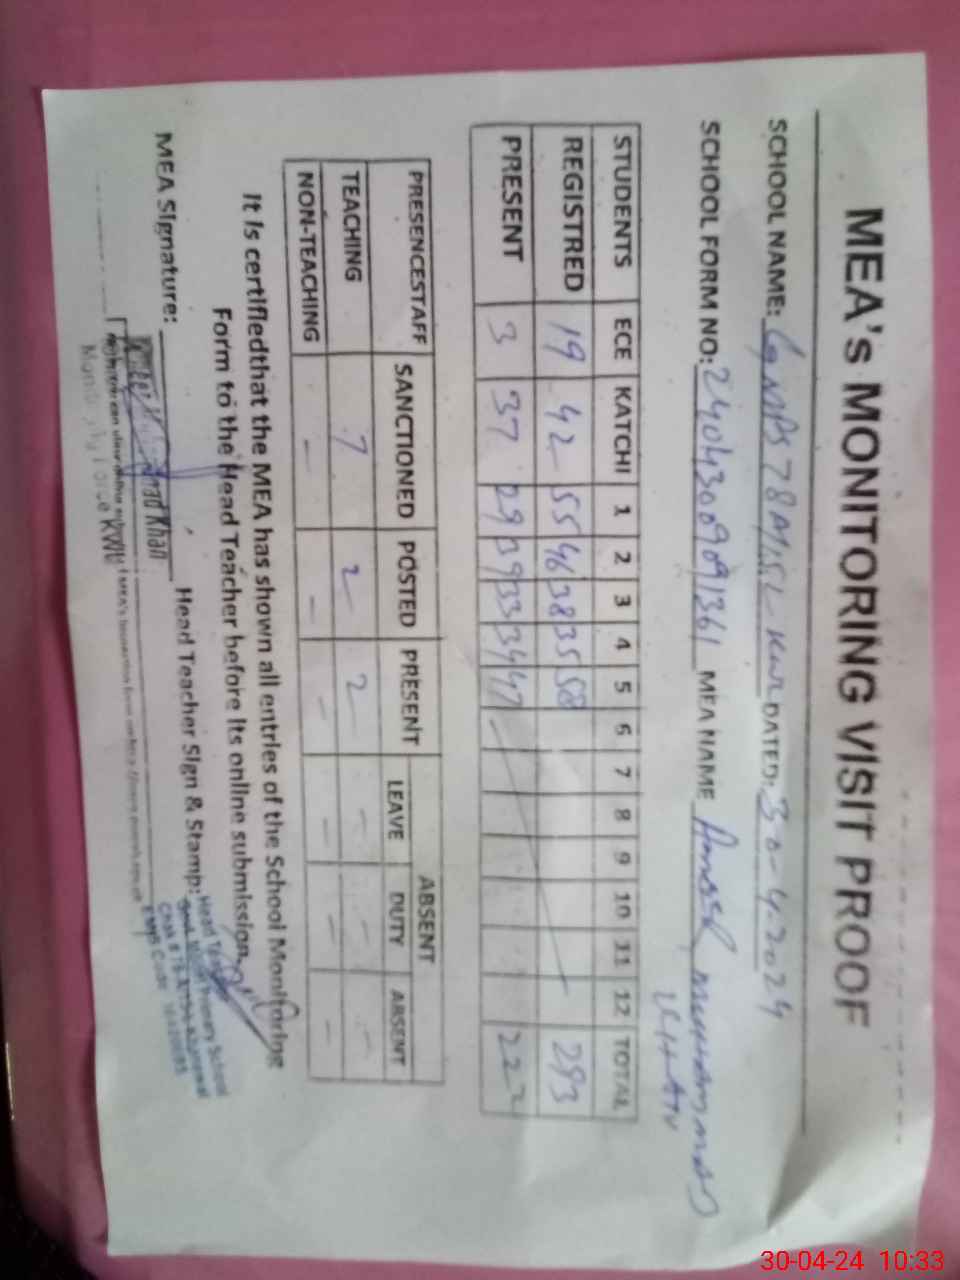 MEA's MONITORING VISIT PROOF
SCHOOL NAME: GMPS 78A/15L KWL DATED: 30-4-2024
SCHOOL FORM NO: 24043009091361 MEA NAME Ameer MUHAMMAD
KHAN
STUDENTS ECE KATCHI 1 2 3 4 5 6 7 8 9 10 11 12 TOTAL
REGISTRED 19 42 55 46 38 35 58 293
PRESENT 3 37 29 39 33 34 47 222
PRESENCESTAFF SANCTIONED POSTED PRESENT ABSENT
LEAVE DUTY ABSENT
TEACHING 7 2 2 - - -
NON-TEACHING - - - - - -
It is certifiedthat the MEA has shown all entries of the School Monitoring
Form to the Head Teacher before its online submission.
MEA Signature: Head Teacher Sign & Stamp:
Muhammad Khan
Monitoring Force KWL
Head Teacher
Govt. Primary School
EMIS Code
30-04-24 10:33